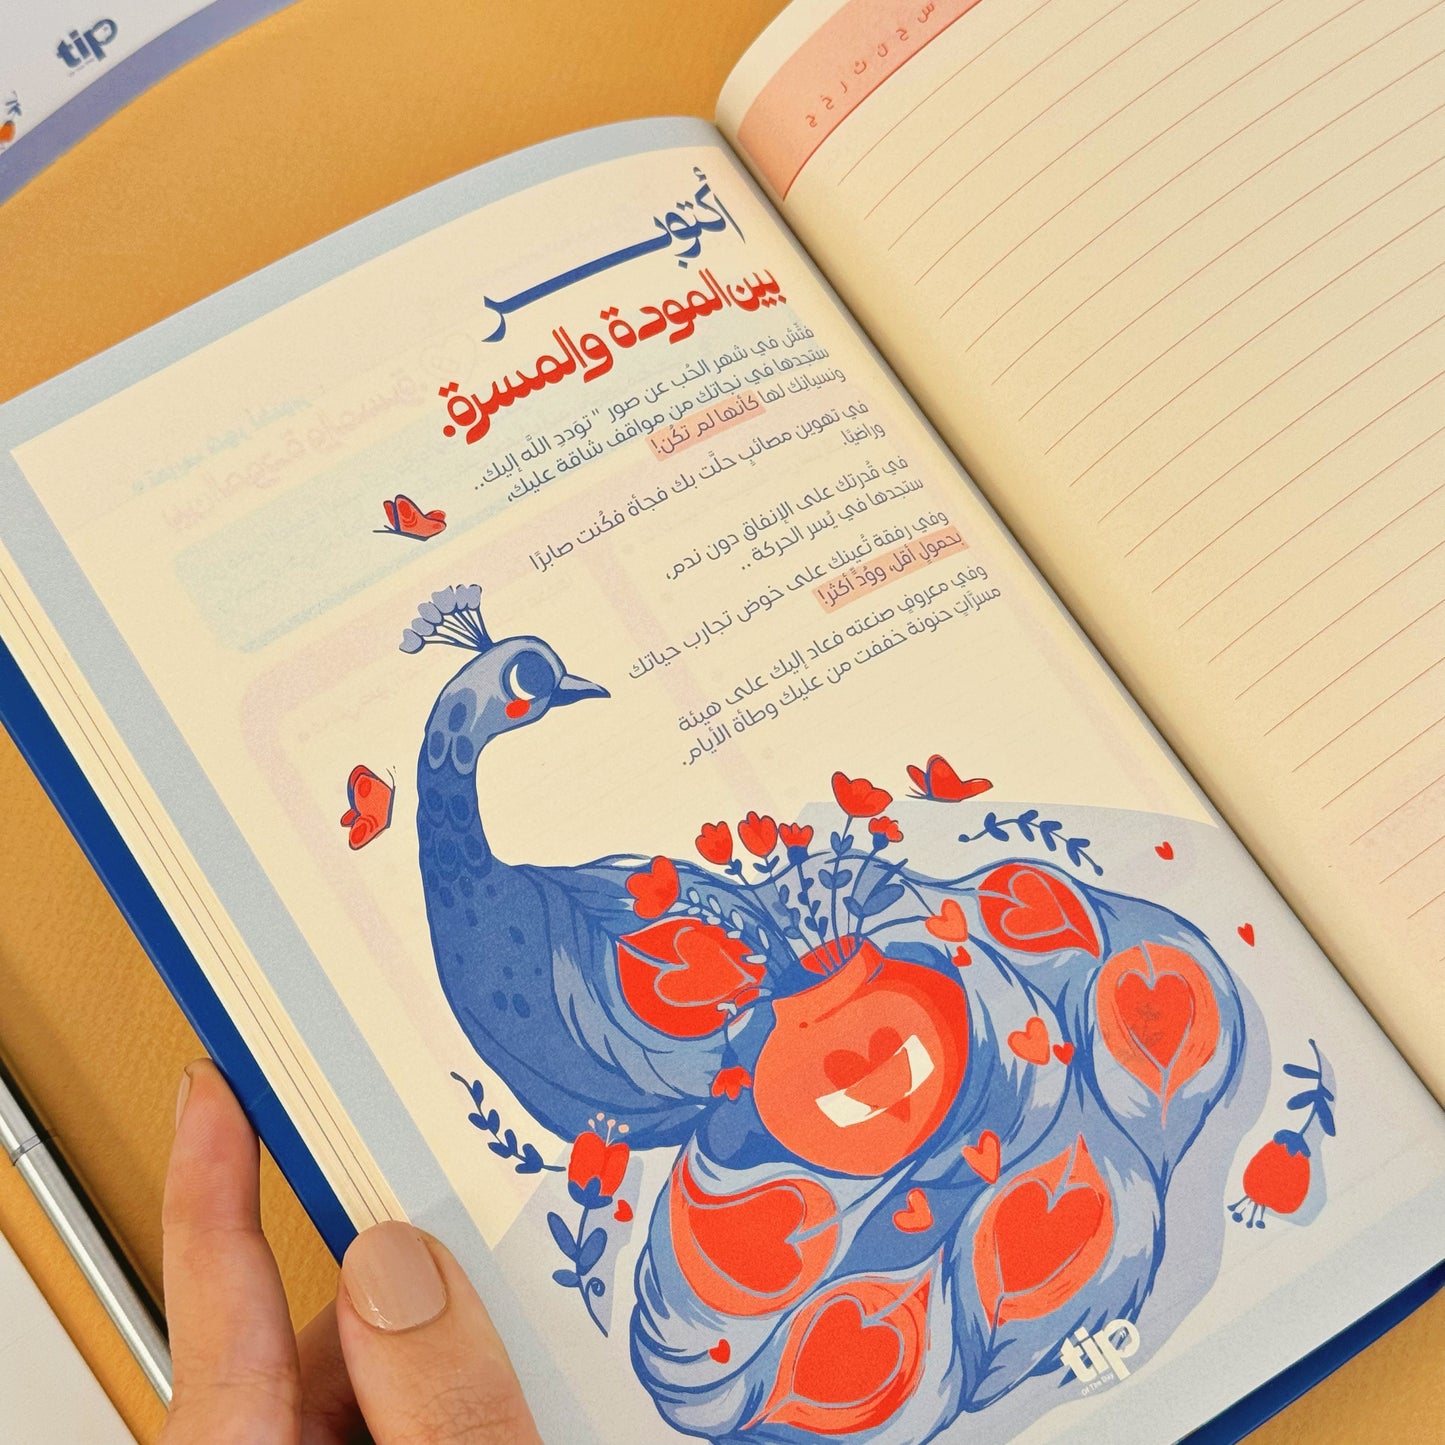 tip
Of The Day
س ح ن ث ر خ ج
أكتوبر
بين المودة والمسرة.
فتِّش في شهر الحُب عن صور "توَددِ اللَّه إليك..
ستجدها في نجاتك من مواقف شاقة عليك،
ونسيانك لها كأنها لم تكُن!
في تهوين مصائبٍ حلَّت بك فجأة فكُنت صابرًا
وراضيًا.
في قُدرتك على الإنفاق دون ندم،
ستجدها في يُسر الحركة ..
وفي رفقة تُعينك على خوض تجارب حياتك
بحمولٍ أقل، ووُدًّ أكثر!
وفي معروفٍ صنعته فعاد إليك على هيئة
مسرَّاتٍ حنونة خففت من عليك وطأة الأيام.
tip
Of The Day